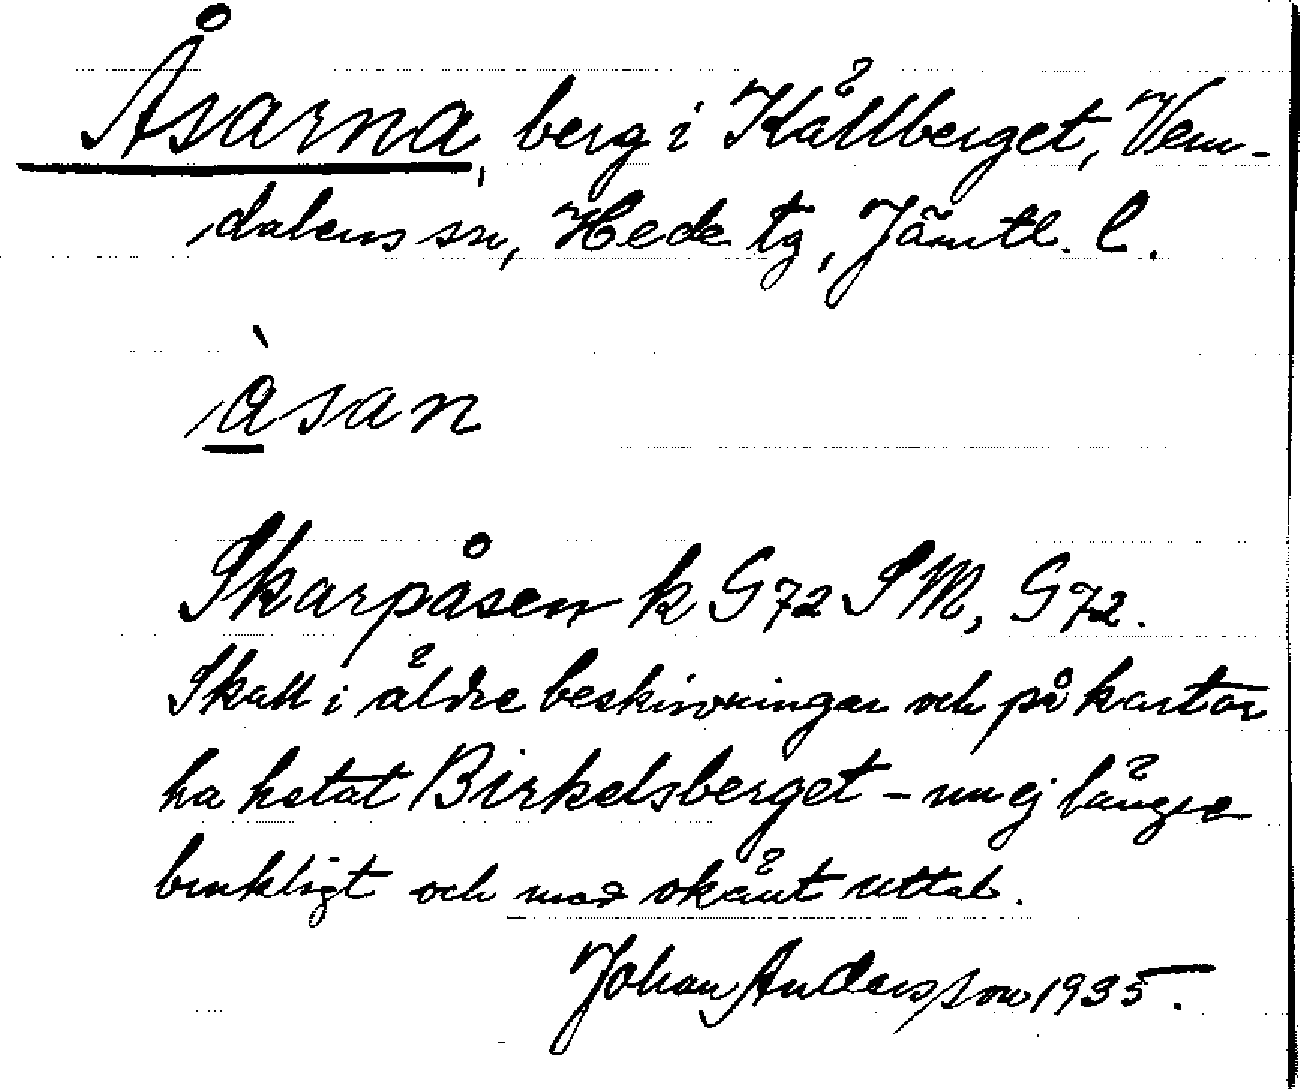 Åsarna, berg i Källberget, Vem-
dalens sn, Hede tg, Jämtl. l.
àsan
Skarpåsen k G72 SM, G72.
Skall i äldre beskrivningar och på kartor
ha hetat Birkelsberget - nu ej längre
brukligt och med okänt uttal.
Johan Andersson 1935.